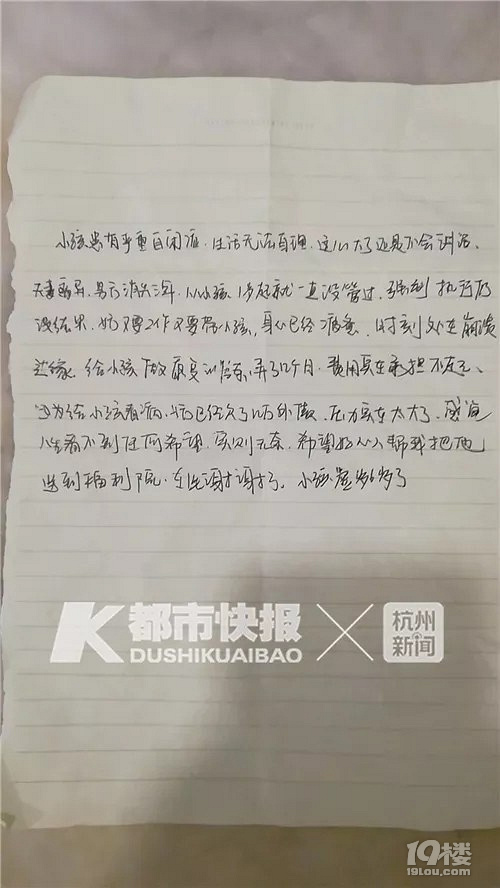 小孩患有严重自闭症.生活无法自理.这么大了还是不会讲话.
夫妻离异.男方消失多年.从小孩1岁起就一直没管过.强制执行后
没结果.妈又要工作又要带小孩,身心已经疲惫.时刻处在崩溃
边缘.给小孩做康复训练,弄了几个月.费用实在承担不起了、
因为给小孩看病.我已经欠了几万外债.压力实在太大了.感觉
人生看不到任何希望.实则无奈.希望好心人帮我把他
送到福利院.在此谢谢了.小孩虚岁6岁了
都市快报
DUSHIKUAIBAO
杭州
新闻
19楼
19lou.com